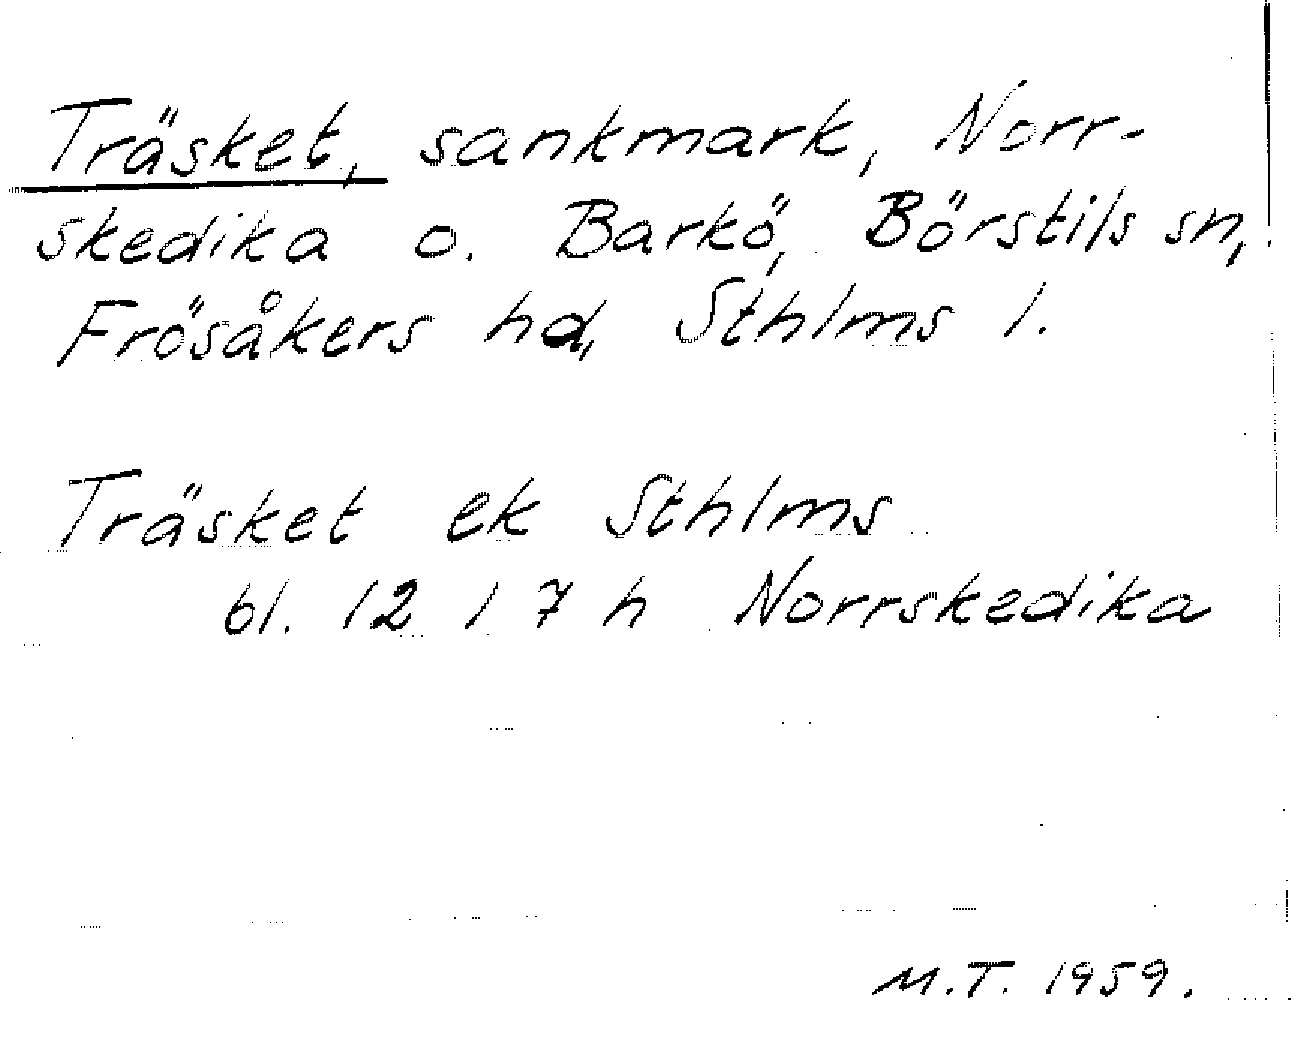 Träsket, sankmark, Norr-
skedika o. Barkö, Börstils sn,
Frösåkers hd, Sthlms l.
Träsket ek Sthlms
bl. 12 I 7 h Norrskedika
M.T. 1959.